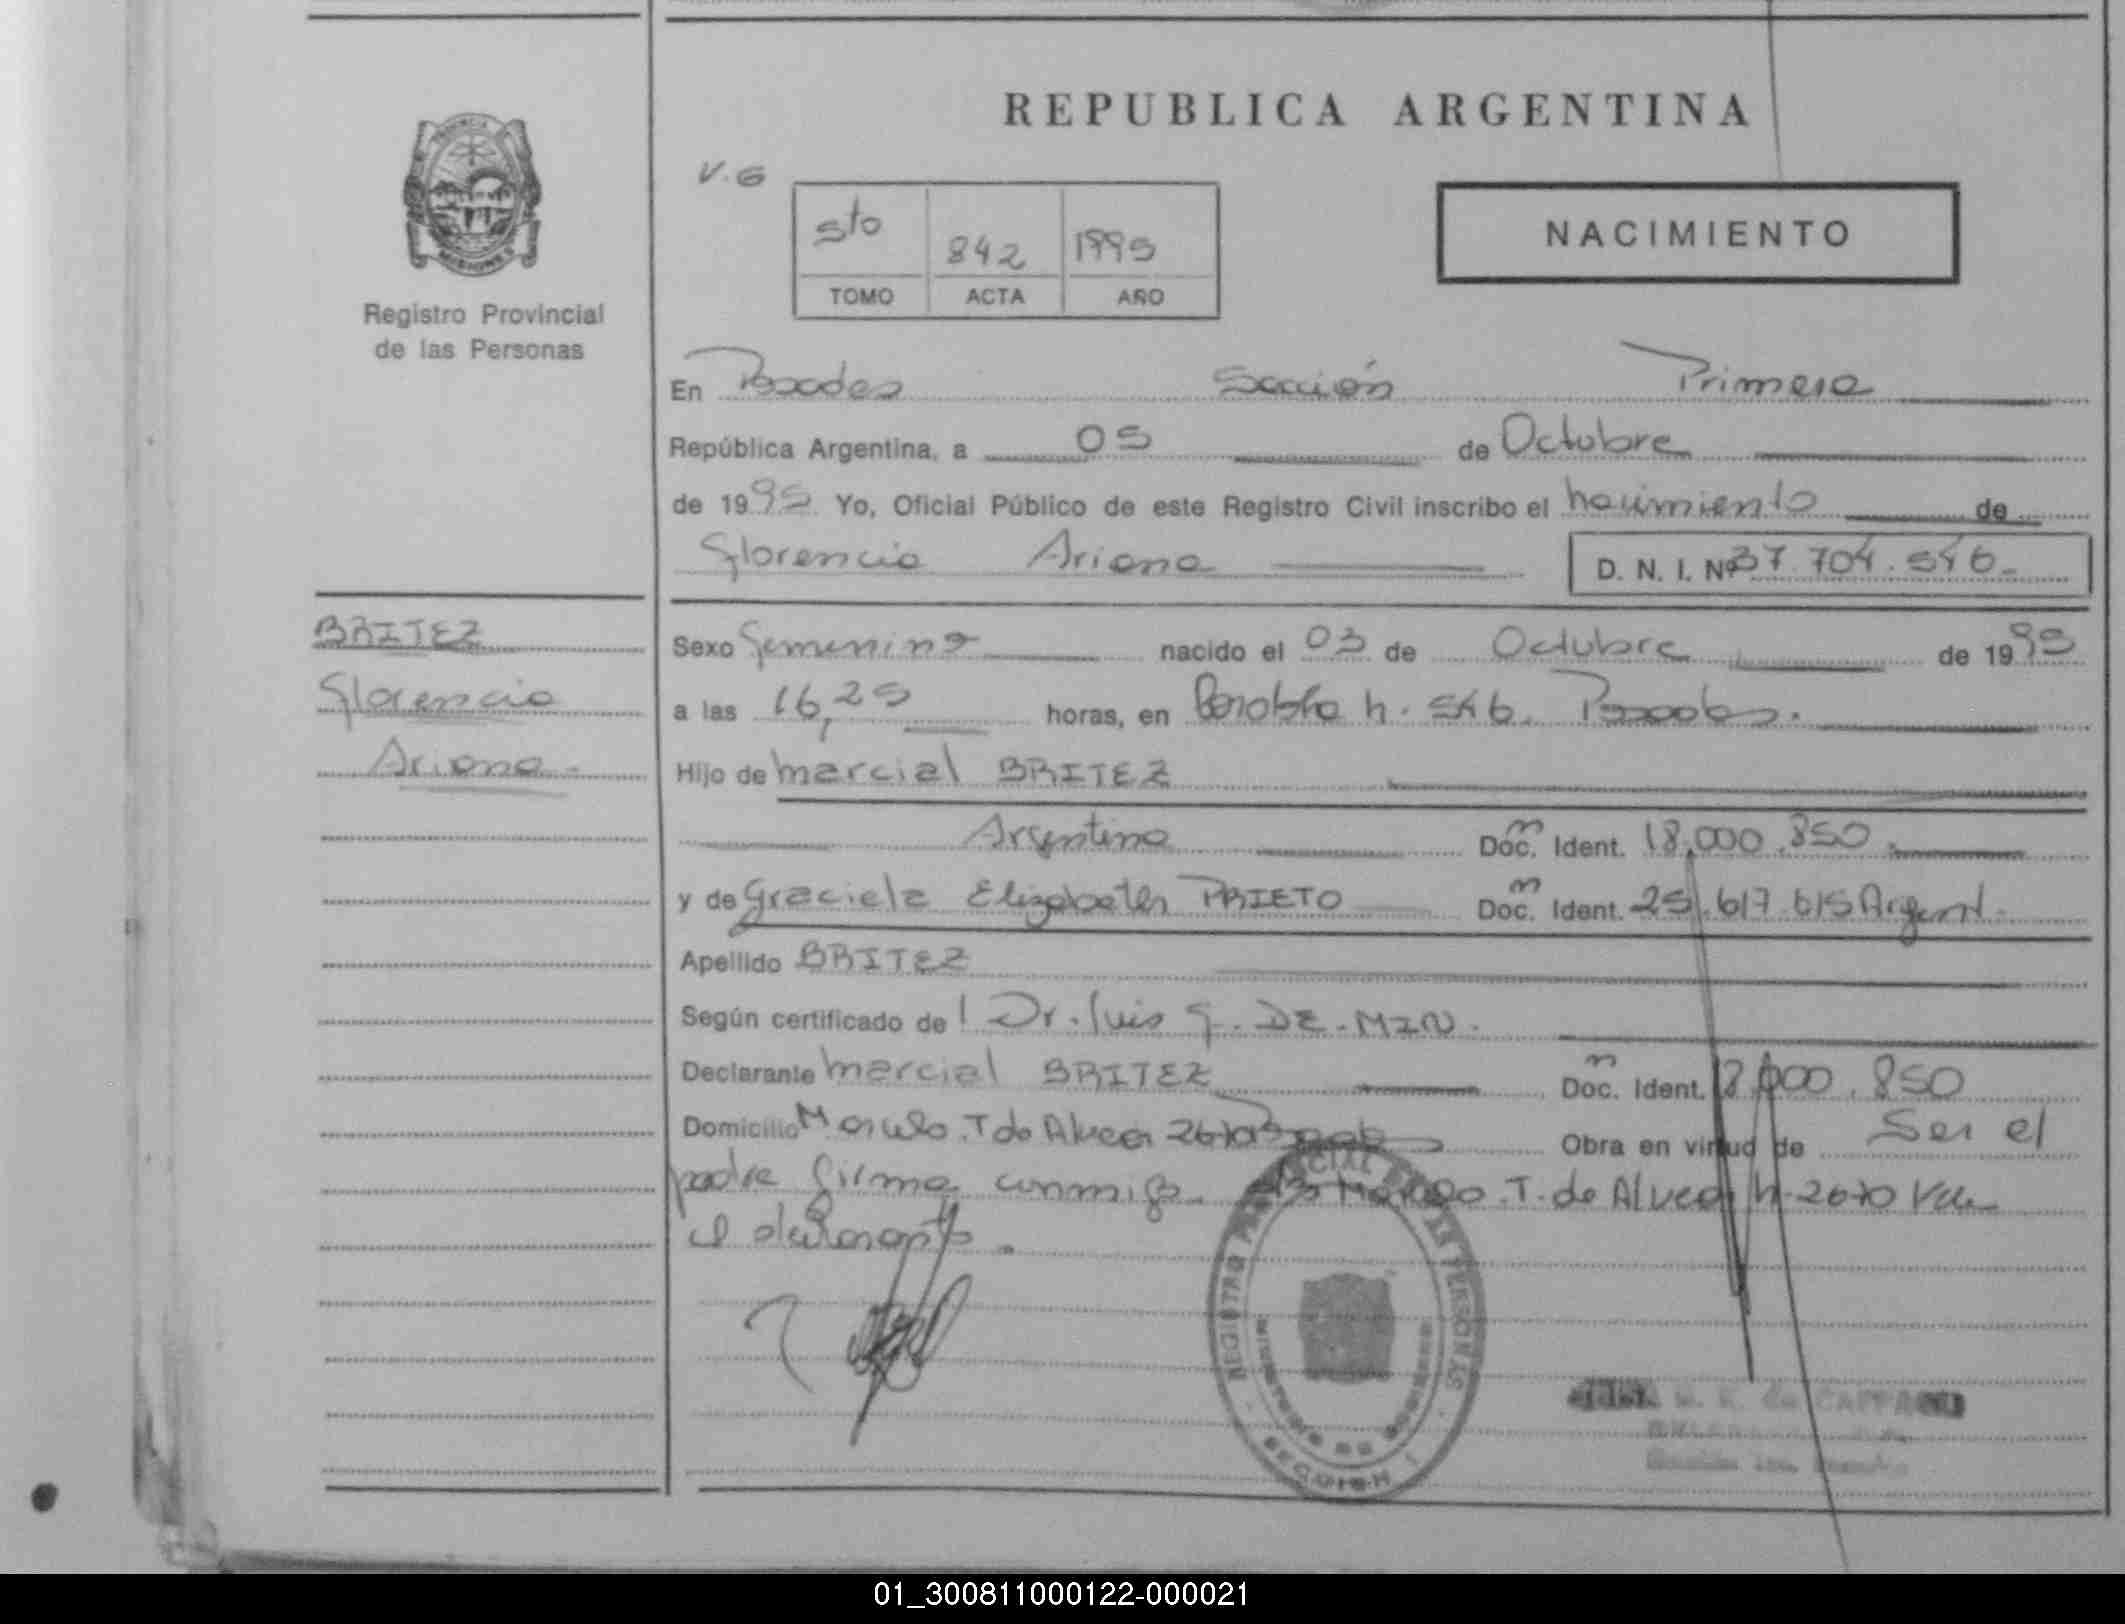 REPUBLICA ARGENTINA
PROVINCIA
MISIONES
Registro Provincial
de las Personas
V.G
5to 842 1995
TOMO ACTA AÑO
NACIMIENTO
En Posadas Sección Primera
República Argentina, a 05 de Octubre
de 1995 Yo, Oficial Público de este Registro Civil inscribo el nacimiento de
Florencia Ariana D. N. I. Nº 37.704.546.-
BRITEZ
Florencia
Ariana.-
Sexo Femenino nacido el 03 de Octubre de 1995
a las 16,25 horas, en n. 546. Posadas.
Hijo de Marcial BRITEZ
Argentina Doc. Ident. 18.000.850.
y de Graciela Elizabeth PRIETO Doc. Ident. 25.617.615 Argent.
Apellido BRITEZ
Según certificado del Dr. Luis G. DE-MIN.
Declarante Marcial BRITEZ Doc. Ident. 18.000.850
Domicilio Marcelo.T de Alvear 2670 Posadas Obra en virtud de Ser el
padre firma conmigo. Marcelo.T. de Alvear n. 2670 Vale
el declarante.
REGISTRO PROVINCIAL DE LAS PERSONAS
01_300811000122-000021